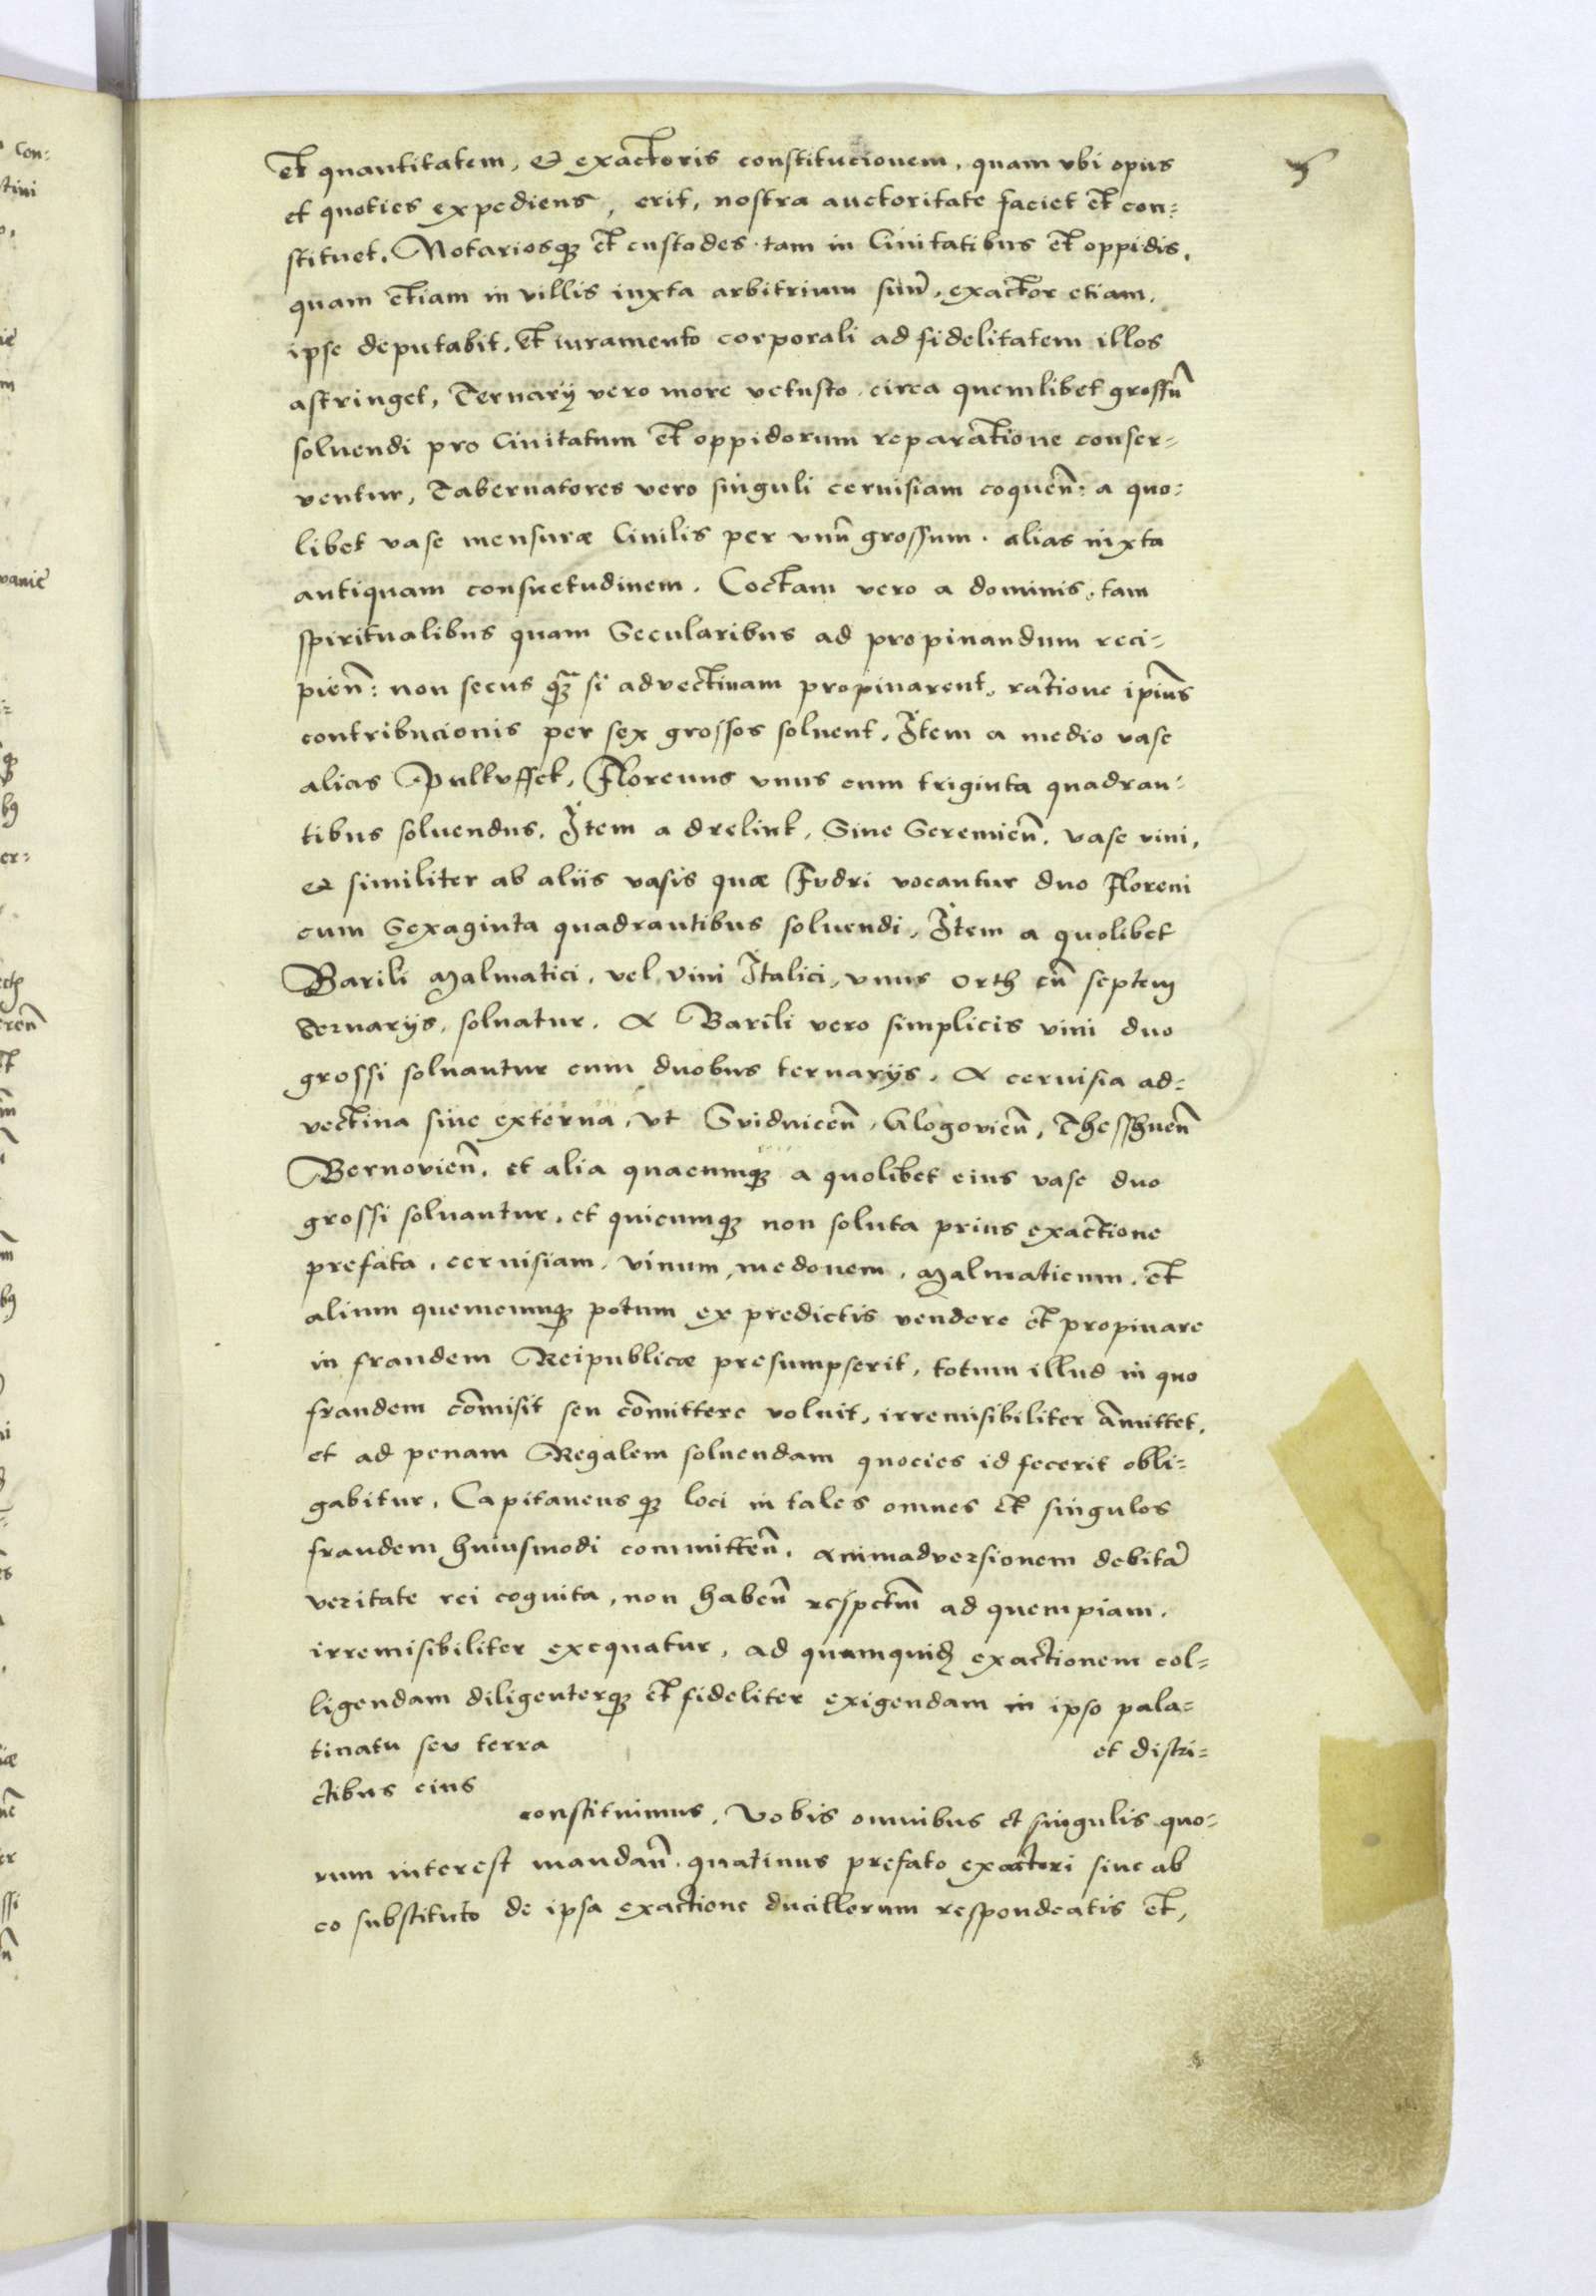 et quantitatem, & exactoris constitucionem, quam vbi opus
et quoties expediens, erit, nostra auctoritate faciet et con:
stituet. Notariosq3 et custodes tam in Ciuitatibus et oppidis,
quam etiam in villis iuxta arbitrium suũ, exactor etiam,
ipse deputabit, et iuramento corporali ad fidelitatem illos
astringet, Ternarij vero more vetusto circa quemlibet grossũ
soluendi pro Ciuitatum et oppidorum reparatione conser-
ventur, Tabernatores vero singuli ceruisiam coqueñ: a quo:
libet vase mensuræ Ciuilis per vnũ grossum. alias iuxta
antiquam consuetudinem. Coctam vero a dominis, tam
spiritualibus quam Secularibus ad propinandum reci-
pieñ: non secus q̃3 si advectiuam propinarent, ratione ip̃ius
contribucionis per sex grossos soluent. Item a medio vase
alias Pulkuffek, Florenus vnus cum triginta quadran-
tibus soluendus. Item a drelink, Siue Seremieñ. vase vini,
et similiter ab aliis vasis quæ Fudri vocantur duo Floreni
cum Sexaginta quadrantibus soluendi. Item a quolibet
Barili Malmatici, vel vini Italici, vnus orth cũ septem
ternarijs, soluatur. A Barili vero simplicis vini duo
grossi soluantur cum duobus ternarijs. A ceruisia ad-
vectiua siue externa, vt Suidniceñ, Glogovieñ, Thesshneñ
Bernovieñ. et alia quacumq3 a quolibet eius vase duo
grossi soluantur. et quicumq3 non soluta prius exactione
prefata, ceruisiam, vinum, medonem, Malmaticum, et
alium quemcumq3 potum ex predictis vendere et propinare
in fraudem Reipublicæ presumpserit, totum illud in quo
fraudem cõmisit seu cõmittere voluit, irremisibiliter amittet,
et ad penam Regalem soluendam quocies id fecerit obli-
gabitur, Capitaneus q3 loci in tales omnes et singulos
fraudem huiusmodi committeñ. animadversionem debitã
veritate rei cognita, non habeñ respectũ ad quempiam,
irremisibiliter exequatur, ad quamquid3 exactionem col-
ligendam diligenterq3 et fideliter exigendam in ipso pala-
tinatu seu terra et distri-
ctibus eius
constituimus, Vobis omnibus et singulis quo-
rum interest mandañ. quatinus prefato exactori siue ab
eo substituto de ipsa exactione ducillorum respondeatis et,